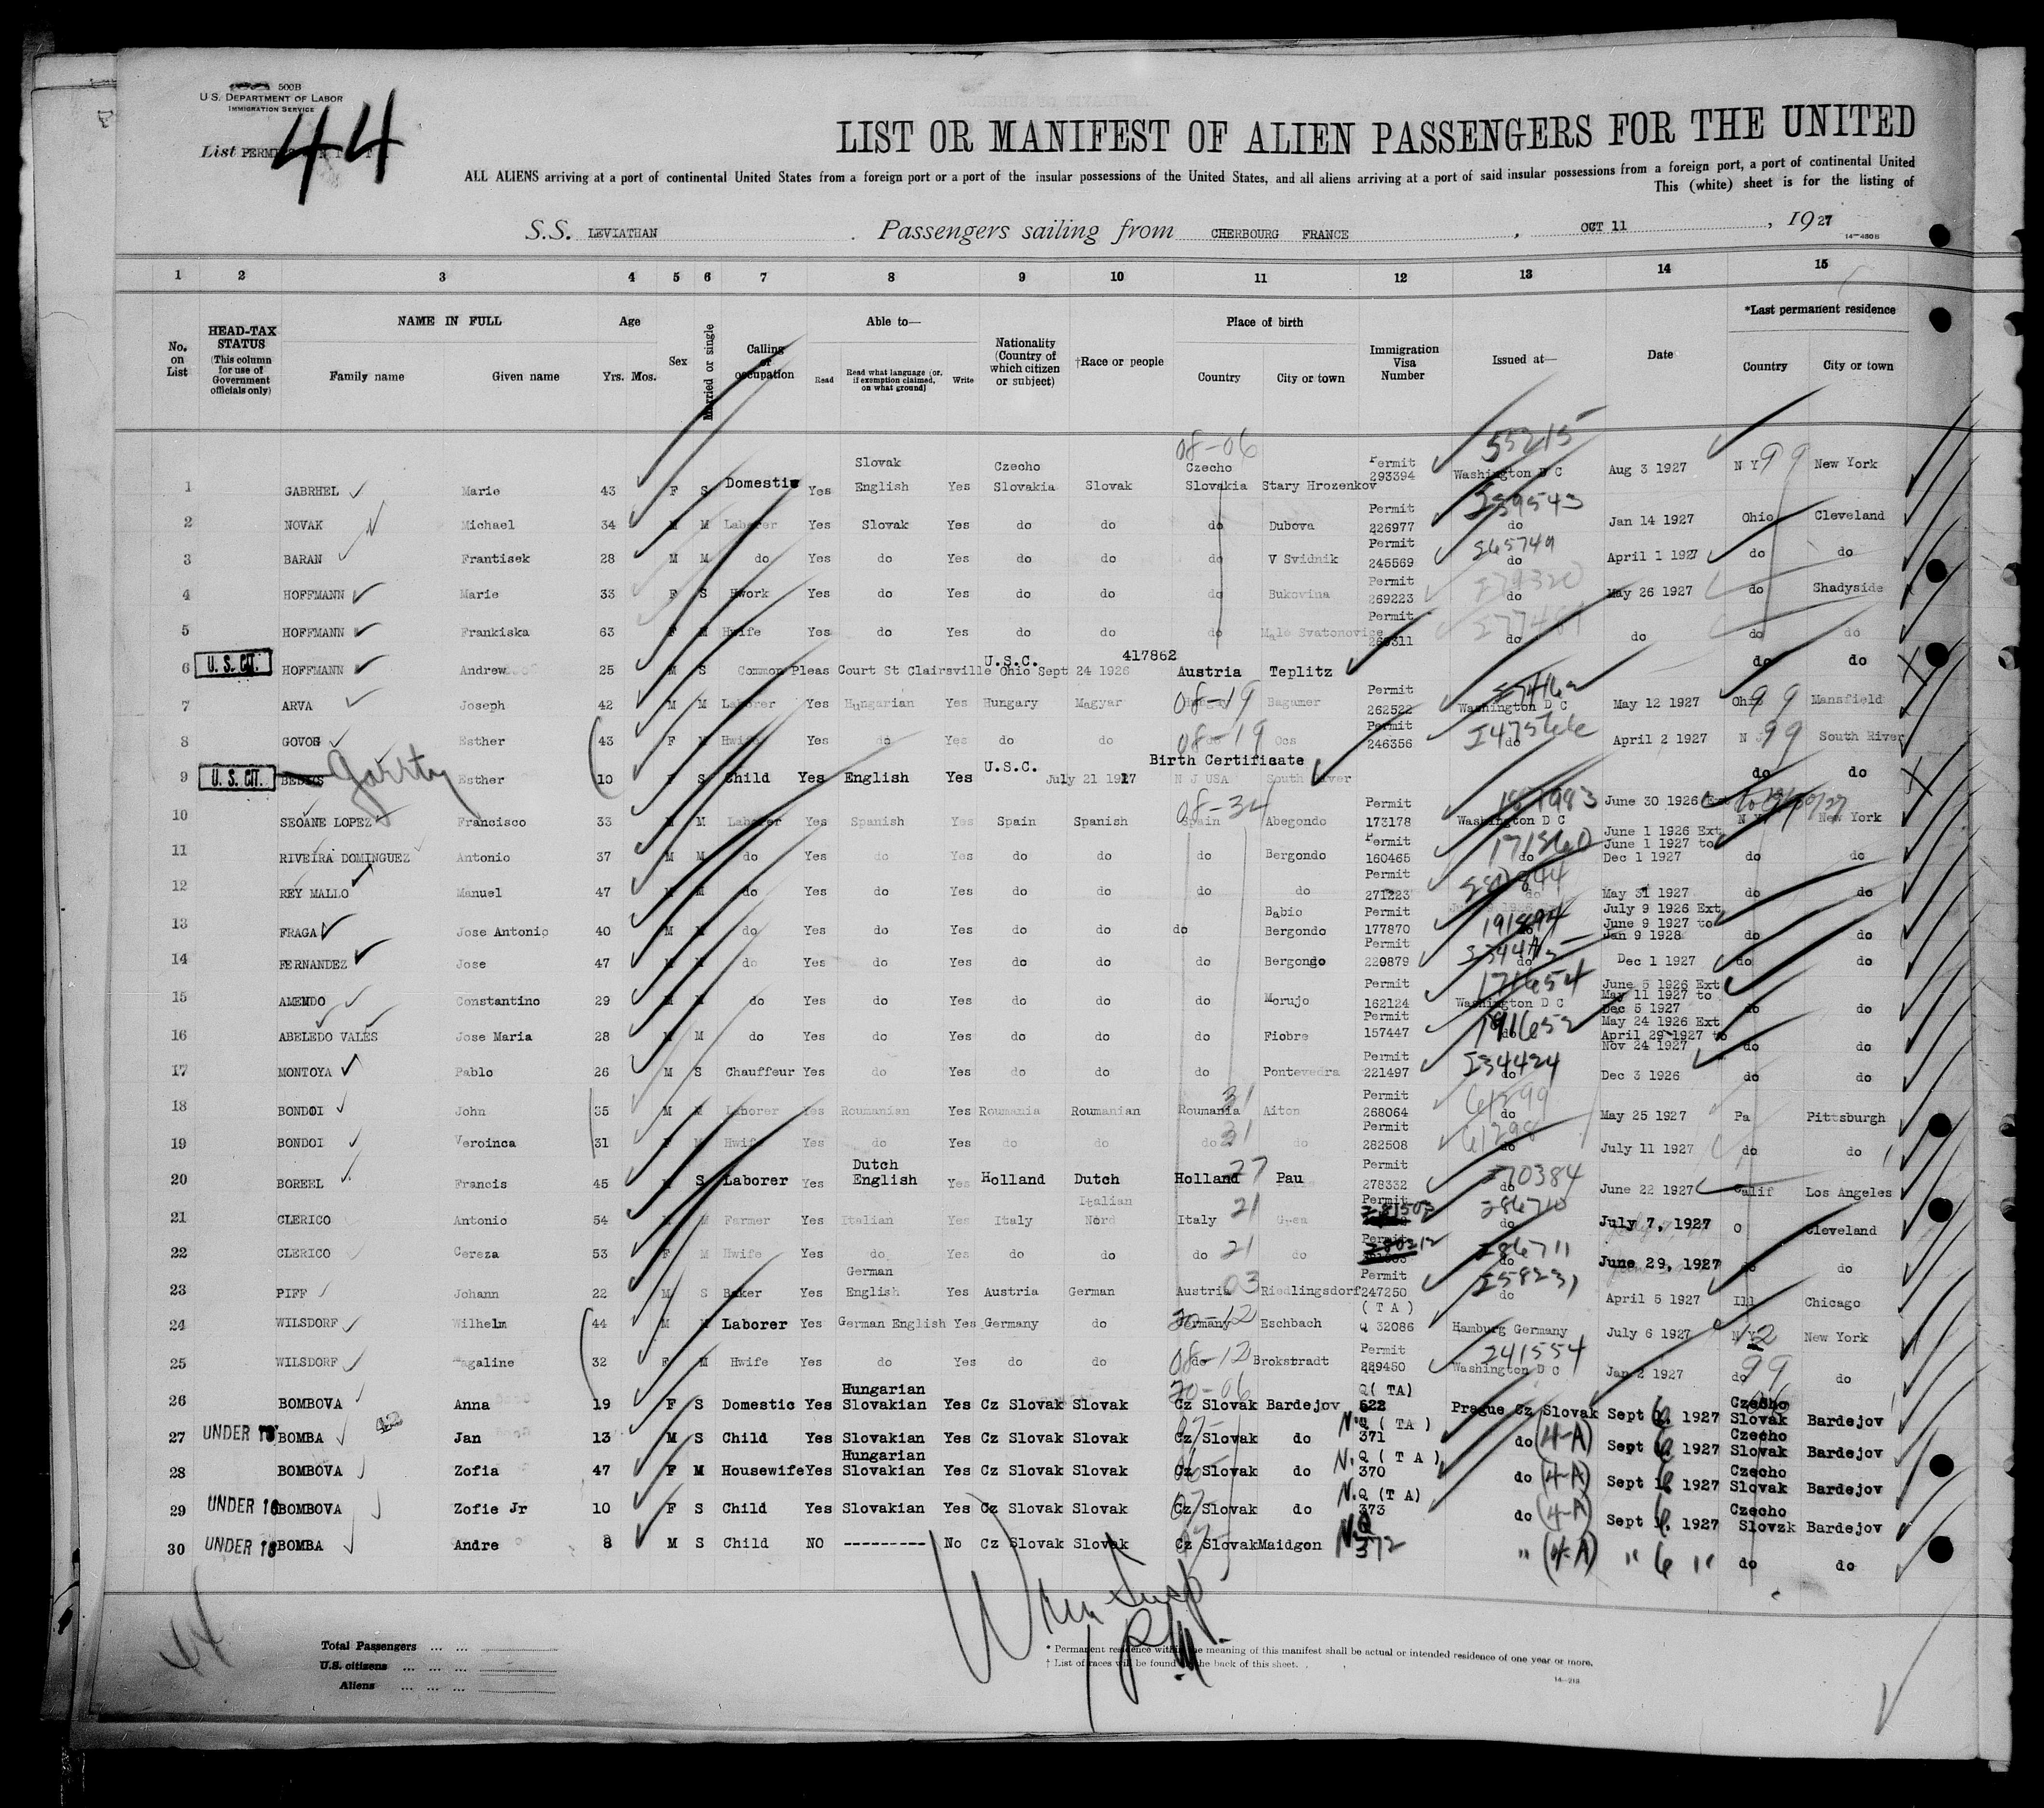 500B
U.S. DEPARTMENT OF LABOR
IMMIGRATION SERVICE
List
44
LIST OR MANIFEST OF ALIEN PASSENGERS FOR THE UNITED
ALL ALIENS arriving at a port of continental United States from a foreign port or a port of the insular possessions of the United States, and all aliens arriving at a port of said insular possessions from a foreign port, a port of continental United
This (white) sheet is for the listing of
S.S. LEVIATHAN . Passengers sailing from CHERBOURG FRANCE , OCT 11 , 1927
14—480B
1 2 3 4 5 6 7 8 9 10 11 12 13 14 15
No. on List HEAD-TAX STATUS (This column for use of Government officials only) NAME IN FULL Family name Given name Age Yrs. Mos. Sex Married or single Calling or occupation Able to— Read Read what language (or, if exemption claimed, on what ground) Write Nationality (Country of which citizen or subject) †Race or people Place of birth Country City or town Immigration Visa Number Issued at— Date *Last permanent residence Country City or town
08-06 55215
1 GABRHEL Marie 43 F S Domestic Yes Slovak English Yes Czecho Slovakia Slovak Czecho Slovakia Stary Hrozenkov Permit 293394 Washington D C Aug 3 1927 N Y 99 New York
2 NOVAK Michael 34 M M Laborer Yes Slovak Yes do do do Dubova Permit 226977 I59543 do Jan 14 1927 Ohio Cleveland
3 BARAN Frantisek 28 M M do Yes do Yes do do do V Svidnik Permit 245569 do April 1 1927 do do
4 HOFFMANN Marie 33 F S Hwork Yes do Yes do do do Bukovina Permit 269223 do May 26 1927 do Shadyside
5 HOFFMANN Frankiska 63 F M Hwife Yes do Yes do do do Male Svatonovice Permit do do do do
6 U. S. CIT. HOFFMANN Andrew 25 M S Common Pleas Court St Clairsville Ohio Sept 24 1926 U.S.C. 417862 Austria Teplitz do do
7 ARVA Joseph 42 M M Laborer Yes Hungarian Yes Hungary Magyar 08-19 Bagamer Permit 262522 Washington D C May 12 1927 Ohio 99 Mansfield
8 GOVOS Esther 43 F M Hwife Yes do Yes do do 08-19 Ocs Permit 246356 do April 2 1927 N J 99 South River
9 U. S. CIT. Garrty Esther 10 F S Child Yes English Yes U.S.C. July 21 1917 Birth Certificate N J USA South River do do
10 SEOANE LOPEZ Francisco 33 M M Laborer Yes Spanish Yes Spain Spanish 08-34 Spain Abegondo Permit 173178 187983 Washington D C June 30 1926 Ext N Y New York
11 RIVEIRA DOMINGUEZ Antonio 37 M M do Yes do Yes do do do Bergondo Permit 160465 do June 1 1926 Ext June 1 1927 to Dec 1 1927 do do
12 REY MALLO Manuel 47 M M do Yes do Yes do do do do Permit 271223 do May 31 1927 do do
13 FRAGA Jose Antonio 40 M M do Yes do Yes do do do Babio Bergondo Permit 177870 191894 do July 9 1926 Ext June 9 1927 to Jan 9 1928 do do
14 FERNANDEZ Jose 47 M M do Yes do Yes do do do Bergondo Permit 220879 do Dec 1 1927 do do
15 AMENDO Constantino 29 M M do Yes do Yes do do do Morujo Permit 162124 171654 Washington D C June 5 1926 Ext May 11 1927 to Dec 5 1927 do do
16 ABELEDO VALES Jose Maria 28 M M do Yes do Yes do do do Fiobre Permit 157447 191652 do May 24 1926 Ext April 29 1927 to Nov 24 1927 do do
17 MONTOYA Pablo 26 M S Chauffeur Yes do Yes do do do Pontevedra Permit 221497 I34424 do Dec 3 1926 do do
18 BONDOI John 35 M M Laborer Yes Roumanian Yes Roumania Roumanian Roumania 31 Aiton Permit 268064 61299 do May 25 1927 Pa Pittsburgh
19 BONDOI Veroinca 31 F M Hwife Yes do Yes do do do 31 do Permit 282508 61298 do July 11 1927 do do
20 BOREEL Francis 45 M S Laborer Yes Dutch English Yes Holland Dutch Holland 27 Pau Permit 278332 I70384 do June 22 1927 Calif Los Angeles
21 CLERICO Antonio 54 M M Farmer Yes Italian Yes Italy Italian Nord Italy 21 Permit I86710 do July 7, 1927 O Cleveland
22 CLERICO Cereza 53 F M Hwife Yes do Yes do do do 21 do Permit I86711 do June 29, 1927 do do
23 PIFF Johann 22 M S Baker Yes German English Yes Austria German Austria 03 Riedlingsdorf Permit 247250 I58231 do April 5 1927 Ill Chicago
24 WILSDORF Wilhelm 44 M M Laborer Yes German English Yes Germany do Germany 12 Eschbach (TA) Q 32086 Hamburg Germany July 6 1927 N Y 12 New York
25 WILSDORF Magaline 32 F M Hwife Yes do Yes do do 08-12 do Brokstradt Permit 229450 241554 Washington D C Jan 2 1927 do 99 do
26 BOMBOVA Anna 19 F S Domestic Yes Hungarian Slovakian Yes Cz Slovak Slovak 20-06 Cz Slovak Bardejov Q(TA) 522 Prague Cz Slovak Sept 6 1927 Czecho Slovak Bardejov
27 UNDER 16 BOMBA Jan 13 M S Child Yes Slovakian Yes Cz Slovak Slovak Cz Slovak do N.Q (TA) 371 do (4-A) Sept 6 1927 Czecho Slovak Bardejov
28 BOMBOVA Zofia 47 F M Housewife Yes Hungarian Slovakian Yes Cz Slovak Slovak Cz Slovak do N.Q (TA) 370 do (4-A) Sept 6 1927 Czecho Slovak Bardejov
29 UNDER 16 BOMBOVA Zofie Jr 10 F S Child Yes Slovakian Yes Cz Slovak Slovak Cz Slovak do N.Q (TA) 373 do (4-A) Sept 6 1927 Czecho Slovzk Bardejov
30 UNDER 16 BOMBA Andre 8 M S Child NO --------- No Cz Slovak Slovak Cz Slovak Maidgon N.Q 372 " (4-A) " 6 " do do
44
Total Passengers ... ...
U.S. citizens ... ... ...
Aliens ... ... ...
* Permanent residence within the meaning of this manifest shall be actual or intended residence of one year or more.
† List of races will be found on the back of this sheet.
14—218